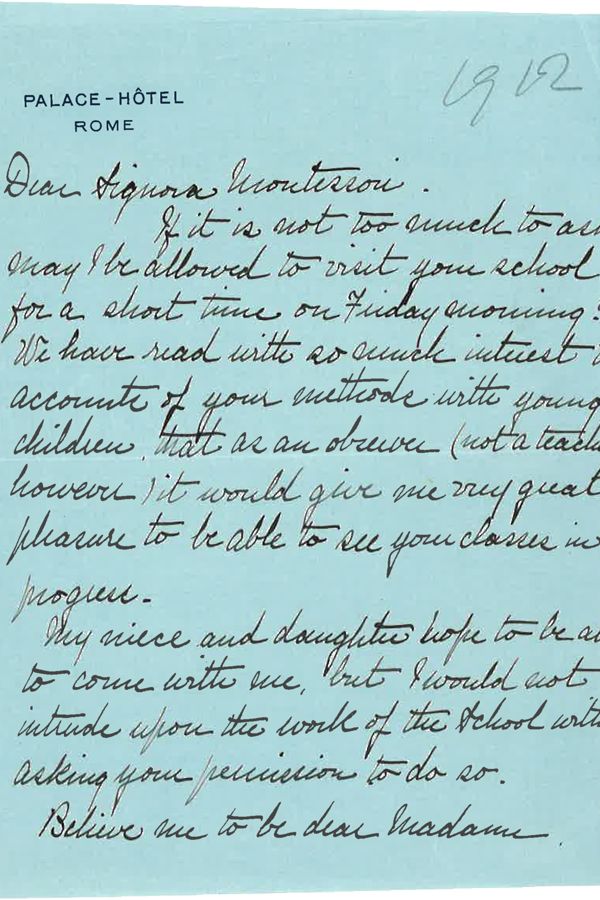 1912
PALACE-HÔTEL
ROME
Dear Signora Montessori.
If it is not too much to ask
may I be allowed to visit your school
for a short time on Friday morning?
We have read with so much interest
accounts of your methods with young
children, that as an observer (not a teach
however) it would give me very great
pleasure to be able to see your classes in
progress.
My niece and daughter hope to be a
to come with me, but I would not
intrude upon the work of the School with
asking your permission to do so.
Believe me to be dear Madame